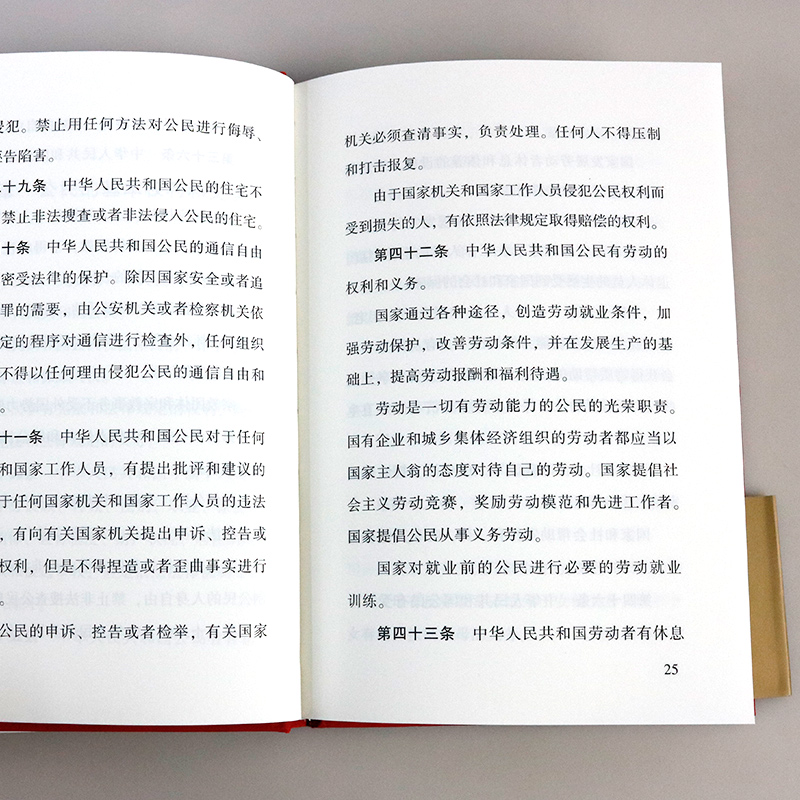 侵犯。禁止用任何方法对公民进行侮辱、
告陷害。
十九条 中华人民共和国公民的住宅不
禁止非法搜查或者非法侵入公民的住宅。
十条 中华人民共和国公民的通信自由
密受法律的保护。除因国家安全或者追
罪的需要，由公安机关或者检察机关依
定的程序对通信进行检查外，任何组织
不得以任何理由侵犯公民的通信自由和
。
十一条 中华人民共和国公民对于任何
和国家工作人员，有提出批评和建议的
于任何国家机关和国家工作人员的违法
，有向有关国家机关提出申诉、控告或
权利，但是不得捏造或者歪曲事实进行
。
公民的申诉、控告或者检举，有关国家
机关必须查清事实，负责处理。任何人不得压制
和打击报复。
由于国家机关和国家工作人员侵犯公民权利而
受到损失的人，有依照法律规定取得赔偿的权利。
第四十二条 中华人民共和国公民有劳动的
权利和义务。
国家通过各种途径，创造劳动就业条件，加
强劳动保护，改善劳动条件，并在发展生产的基
础上，提高劳动报酬和福利待遇。
劳动是一切有劳动能力的公民的光荣职责。
国有企业和城乡集体经济组织的劳动者都应当以
国家主人翁的态度对待自己的劳动。国家提倡社
会主义劳动竞赛，奖励劳动模范和先进工作者。
国家提倡公民从事义务劳动。
国家对就业前的公民进行必要的劳动就业
训练。
第四十三条 中华人民共和国劳动者有休息
25